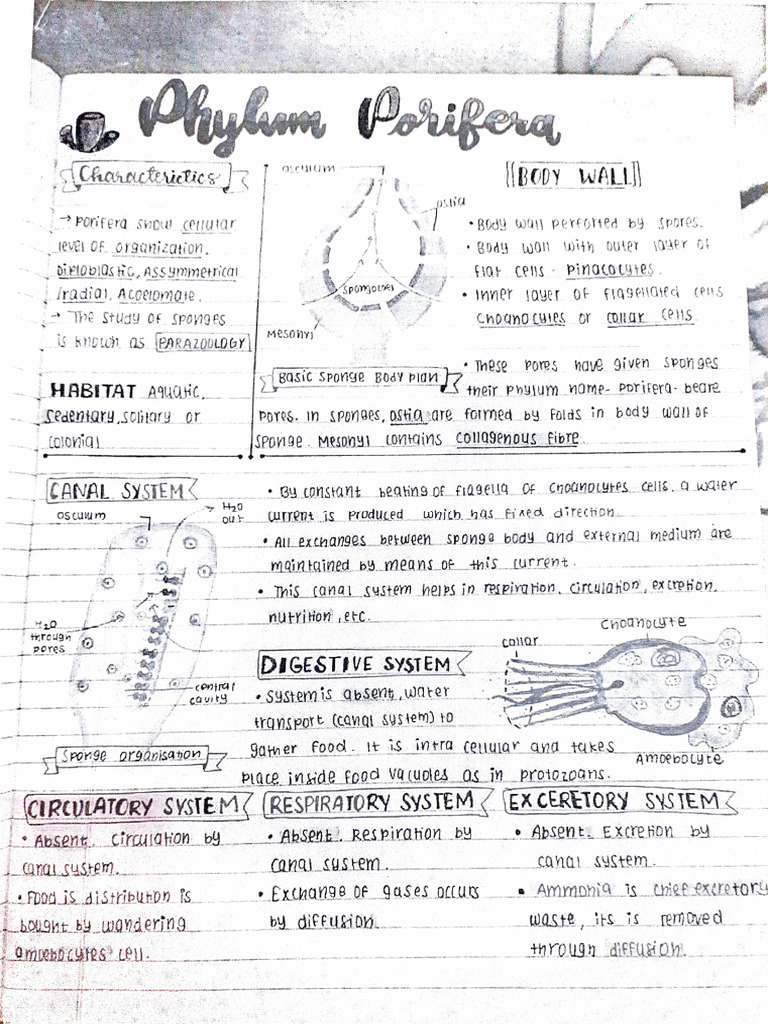 Phylum Porifera
Characteristics
→ Porifera show cellular
level of organization,
Diploblastic, Assymmetrical
/radial, Acoelomate.
→ The study of sponges
is known as PARAZOOLOGY
HABITAT Aquatic,
sedentary, solitary or
colonial
osculum
ostia
spongocoel
Mesohyl
Basic sponge Body plan
BODY WALL
• Body wall perforted by spores.
• Body wall with outer layer of
flat cells - pinacocytes.
• Inner layer of flagellated cells
choanocytes or collar cells.
• These pores have given sponges
their phylum name- porifera- beare
pores. In sponges, ostia are formed by folds in body wall of
sponge. Mesohyl contains collagenous fibre.
CANAL SYSTEM
osculum
H2O
out
H2O
through
pores
central
cavity
Sponge organisation
• By constant beating of flagella of choanocytes cells, a water
current is produced which has fixed direction.
• All exchanges between sponge body and external medium are
maintained by means of this current.
• This canal system helps in respiration, circulation, excretion,
nutrition, etc.
DIGESTIVE SYSTEM
• System is absent, water
transport (canal system) to
gather food. It is intra cellular and takes
place inside food vacuoles as in protozoans.
Choanocyte
collar
Amoebocyte
CIRCULATORY SYSTEM
• Absent. Circulation by
canal system.
• Food is distribution is
bought by wandering
amoebocytes cell.
RESPIRATORY SYSTEM
• Absent. Respiration by
canal system.
• Exchange of gases occurs
by diffusion.
EXCERETORY SYSTEM
• Absent. Excretion by
canal system.
• Ammonia is chief excretory
waste, its is removed
through diffusion.